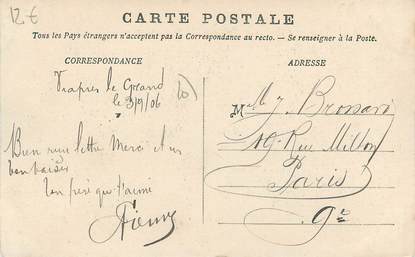 12€
CARTE POSTALE
Tous les Pays étrangers n'acceptent pas la Correspondance au recto. — Se renseigner à la Poste.
CORRESPONDANCE
ADRESSE
Viapres le Grand
le 3/9/06
Bien reçu lettre Merci et un
bon baiser
ton frère qui t'aime
Mlle J. Brossard
Rue Milton
Paris
9e